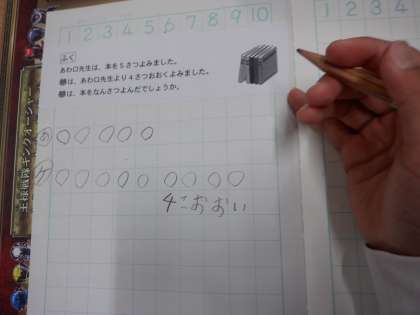 1 2 3 4 5 6 7 8 9 10
1 2 3 4
ふく
あわ口先生は、本を5さつよみました。
は、あわ口先生より4さつおおくよみました。
は、本をなんさつよんだでしょうか。
あ
ケ
4こおおい
王様戦隊キングオージャー